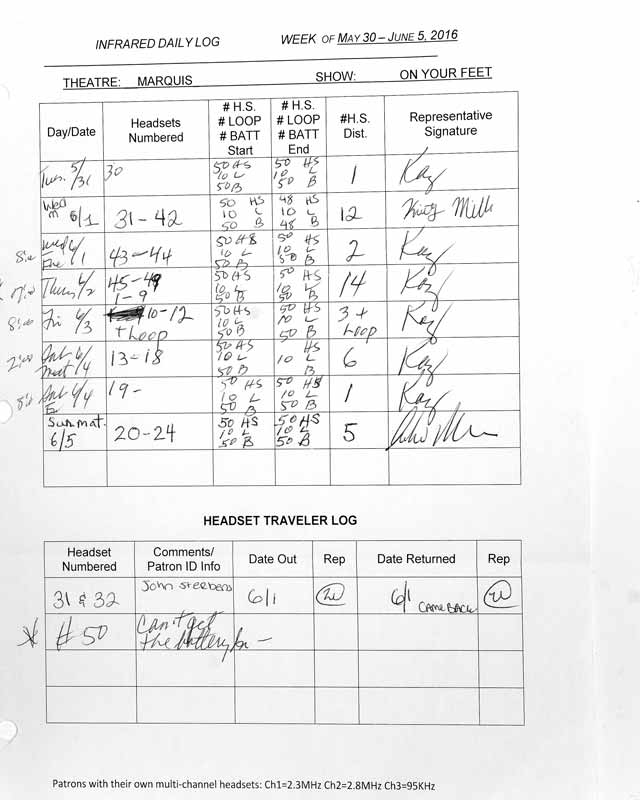 INFRARED DAILY LOG WEEK OF MAY 30 – JUNE 5, 2016
THEATRE: MARQUIS SHOW: ON YOUR FEET
Day/Date Headsets Numbered # H.S. # LOOP # BATT Start # H.S. # LOOP # BATT End #H.S. Dist. Representative Signature
Tues. 5/31 30 50 HS 10 L 50 B 50 HS 10 L 50 B 1 Kay
Wed m 6/1 31-42 50 HS 10 L 50 B 48 HS 10 L 48 B 12
8:00 Wed 6/1 Eve 43-44 50 HS 10 L 50 B 50 HS 10 L 50 B 2 Kay
7:00 Thurs 6/2 45-49 1-9 50 HS 10 L 50 B 50 HS 10 L 50 B 14 Kay
8:00 Fri 6/3 10-12 + Loop 50 HS 10 L 50 B 50 HS 10 L 50 B 3 + Loop Kay
2:00 Sat 6/4 mat 13-18 50 HS 10 L 50 B 10 L 50 B 6 Kay
8:00 Sat 6/4 Ev 19- 50 HS 10 L 50 B 50 HS 10 L 50 B 1 Kay
Sun mat. 6/5 20-24 50 HS 10 L 50 B 50 HS 10 L 50 B 5
HEADSET TRAVELER LOG
Headset Numbered Comments/ Patron ID Info Date Out Rep Date Returned Rep
31 & 32 John 6/1 6/1 CAME BACK
* # 50 Can't get the battery in –
Patrons with their own multi-channel headsets: Ch1=2.3MHz Ch2=2.8MHz Ch3=95KHz